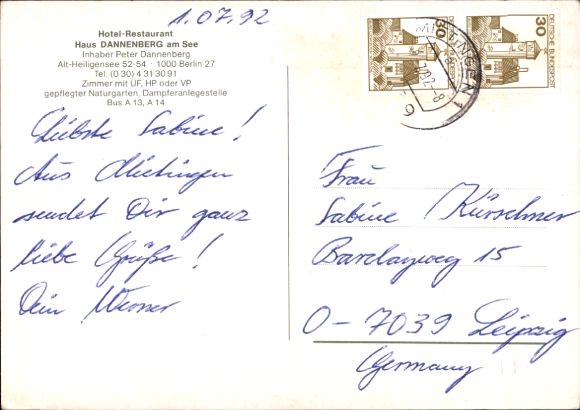 1.07.92
Hotel-Restaurant
Haus DANNENBERG am See
Inhaber Peter Dannenberg
Alt-Heiligensee 52-54 · 1000 Berlin 27
Tel. (0 30) 4 31 30 91
Zimmer mit ÜF, HP oder VP
gepflegter Naturgarten, Dampferanlegestelle
Bus A 13, A 14
Liebste Sabine!
Aus Mietingen
sendet Dir ganz
liebe Grüße!
Dein Werner
30
DEUTSCHE BUNDESPOST
30
MIETINGEN 1
Frau
Sabine Kürschner
Barclayweg 15
O-7039 Leipzig
Germany